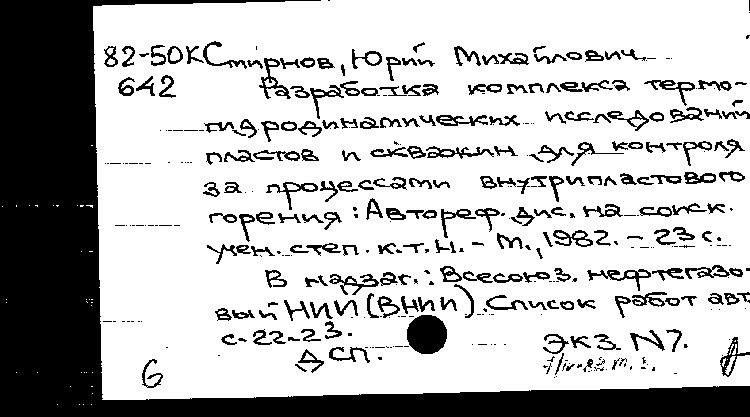 82-50К Смирнов, Юрий Михайлович.
642 Разработка комплекса термо-
гидродинамических исследований
пластов и скважин для контроля
за процессами внутрипластового
горения: Автореф. дис. на соиск.
учен. степ. к.т.н. - М., 1982. - 23 с.
В надзаг.: Всесоюз. нефтегазо-
вый НИИ (ВНИИ). Список работ авт.
с. 22-23.
ДСП. Экз. N7.
б